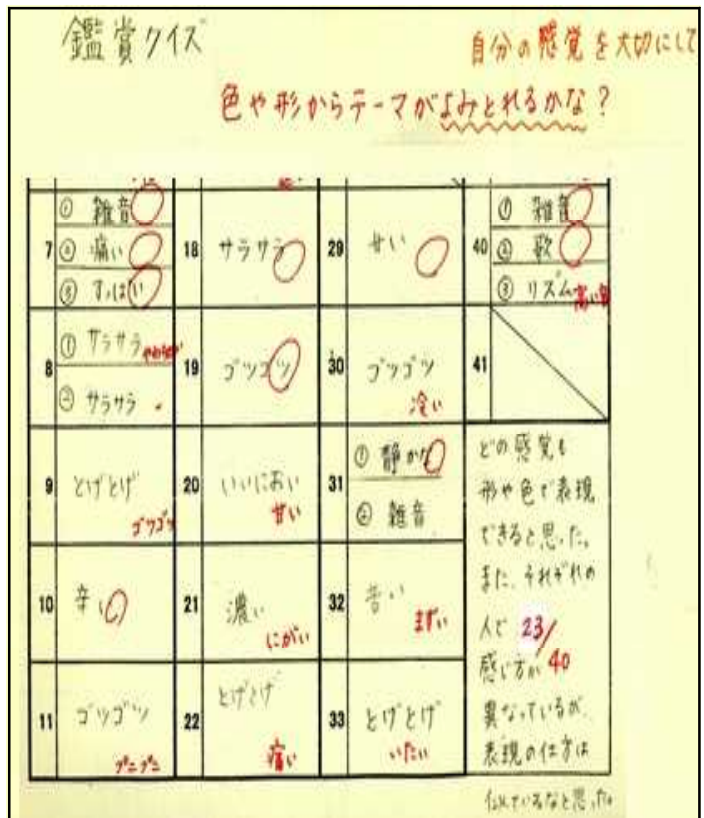 鑑賞クイズ
自分の感覚を大切にして
色や形からテーマがよみとれるかな？
7
① 雑音
② 痛い
③ すっぱい
18 サラサラ
29 甘い
40
① 雑音
② 歌
③ リズム 高い音
8
① サラサラ
② サラサラ
19 ゴツゴツ
30 ゴツゴツ 冷い
41
9 とげとげ ゴツゴツ
20 いいにおい 甘い
31
① 静か
② 雑音
10 辛い
21 濃い にがい
32 苦い まずい
11 ゴツゴツ プニプニ
22 とげとげ 痛い
33 とげとげ いたい
どの感覚も
形や色で表現
できると思った。
また、それぞれの
人で
感じ方が
異なっているが、
表現の仕方は
似ているなと思った。
23/40